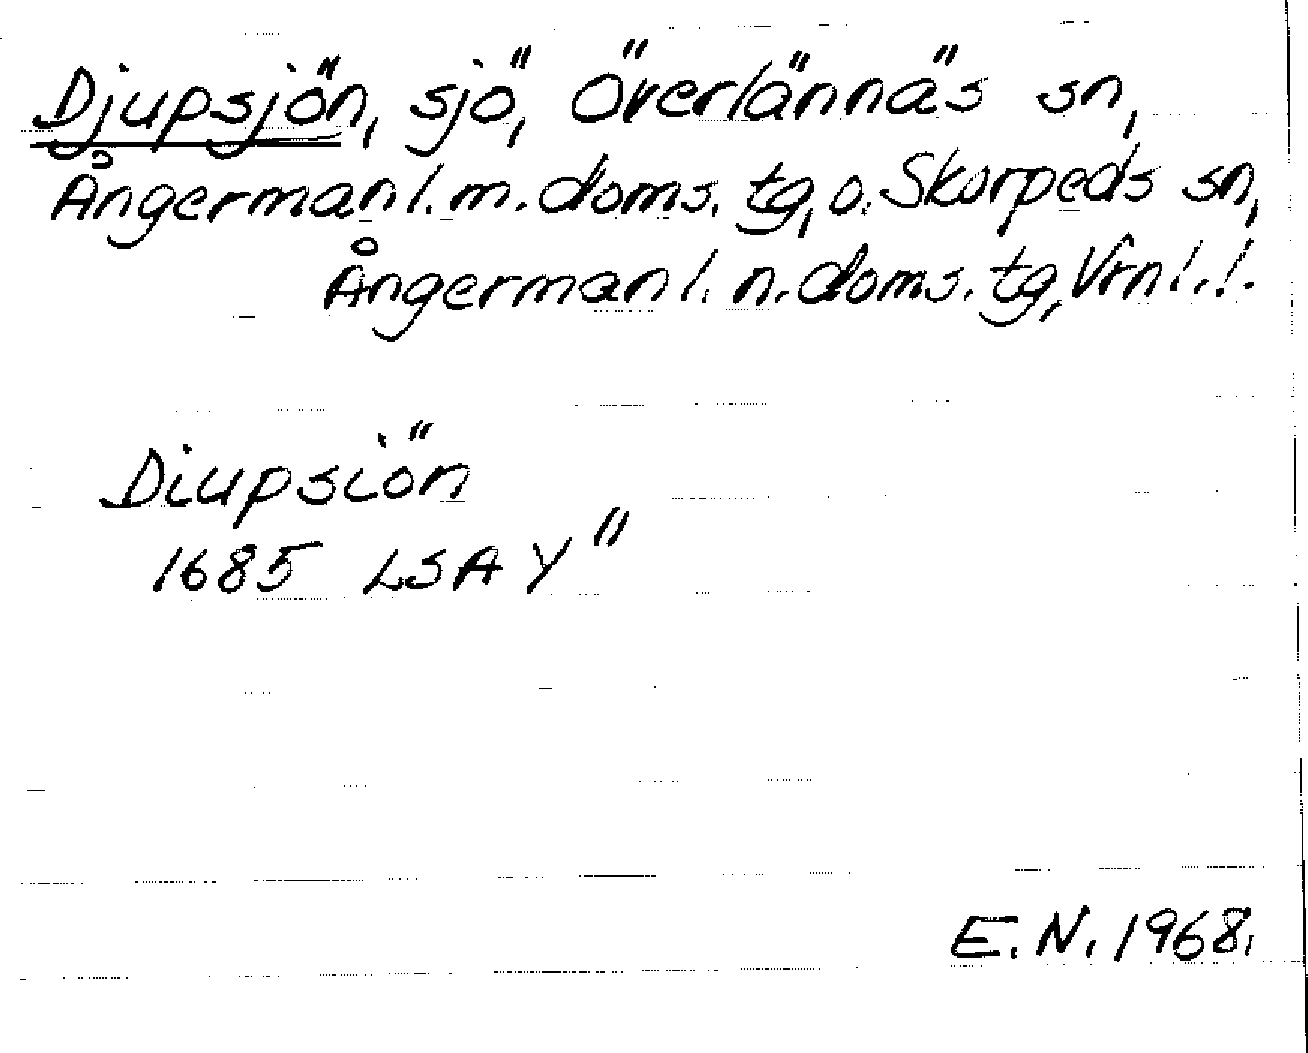 Djupsjön, sjö, Överlännäs sn,
Ångermanl. m. doms. tg, o. Skorpeds sn,
Ångermanl. n. doms. tg, Vrnl. l.
Diupsiön
1685 LSA Y"
E. N. 1968.